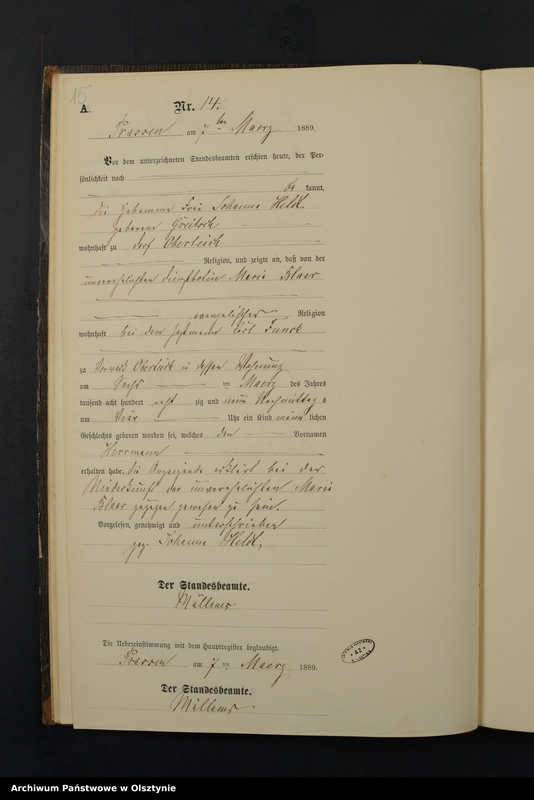 15
A.
Nr. 14.
Prassen am 7ten Maerz 1889.
Vor dem unterzeichneten Standesbeamten erschien heute, der Per-
sönlichkeit nach
be kannt,
die Hebamme Frau Johanne Held
geborene
wohnhaft zu Dorf Oberteich
Religion, und zeigte an, daß von der
unverehelichten Dienstbotin Marie Klaer
evangelischer Religion
wohnhaft bei dem Carl Funck
zu Vorwerk Oberteich in dessen Wohnung
am Sechs ten Maerz des Jahres
tausend acht hundert acht zig und neun Nachmittags
um Vier Uhr ein Kind männ lichen
Geschlechts geboren worden sei, welches den Vornamen
Herrmann
erhalten habe. Die Anzeigende erklärt bei der
Niederkunft der unverehelichten Marie
Klaer zugegen gewesen zu sein.
Vorgelesen, genehmigt und unterschrieben
gez. Johanne Held,
Der Standesbeamte.
Die Uebereinstimmung mit dem Hauptregister beglaubigt.
Prassen am 7ten Maerz 1889.
Der Standesbeamte.
Archiwum Państwowe w Olsztynie